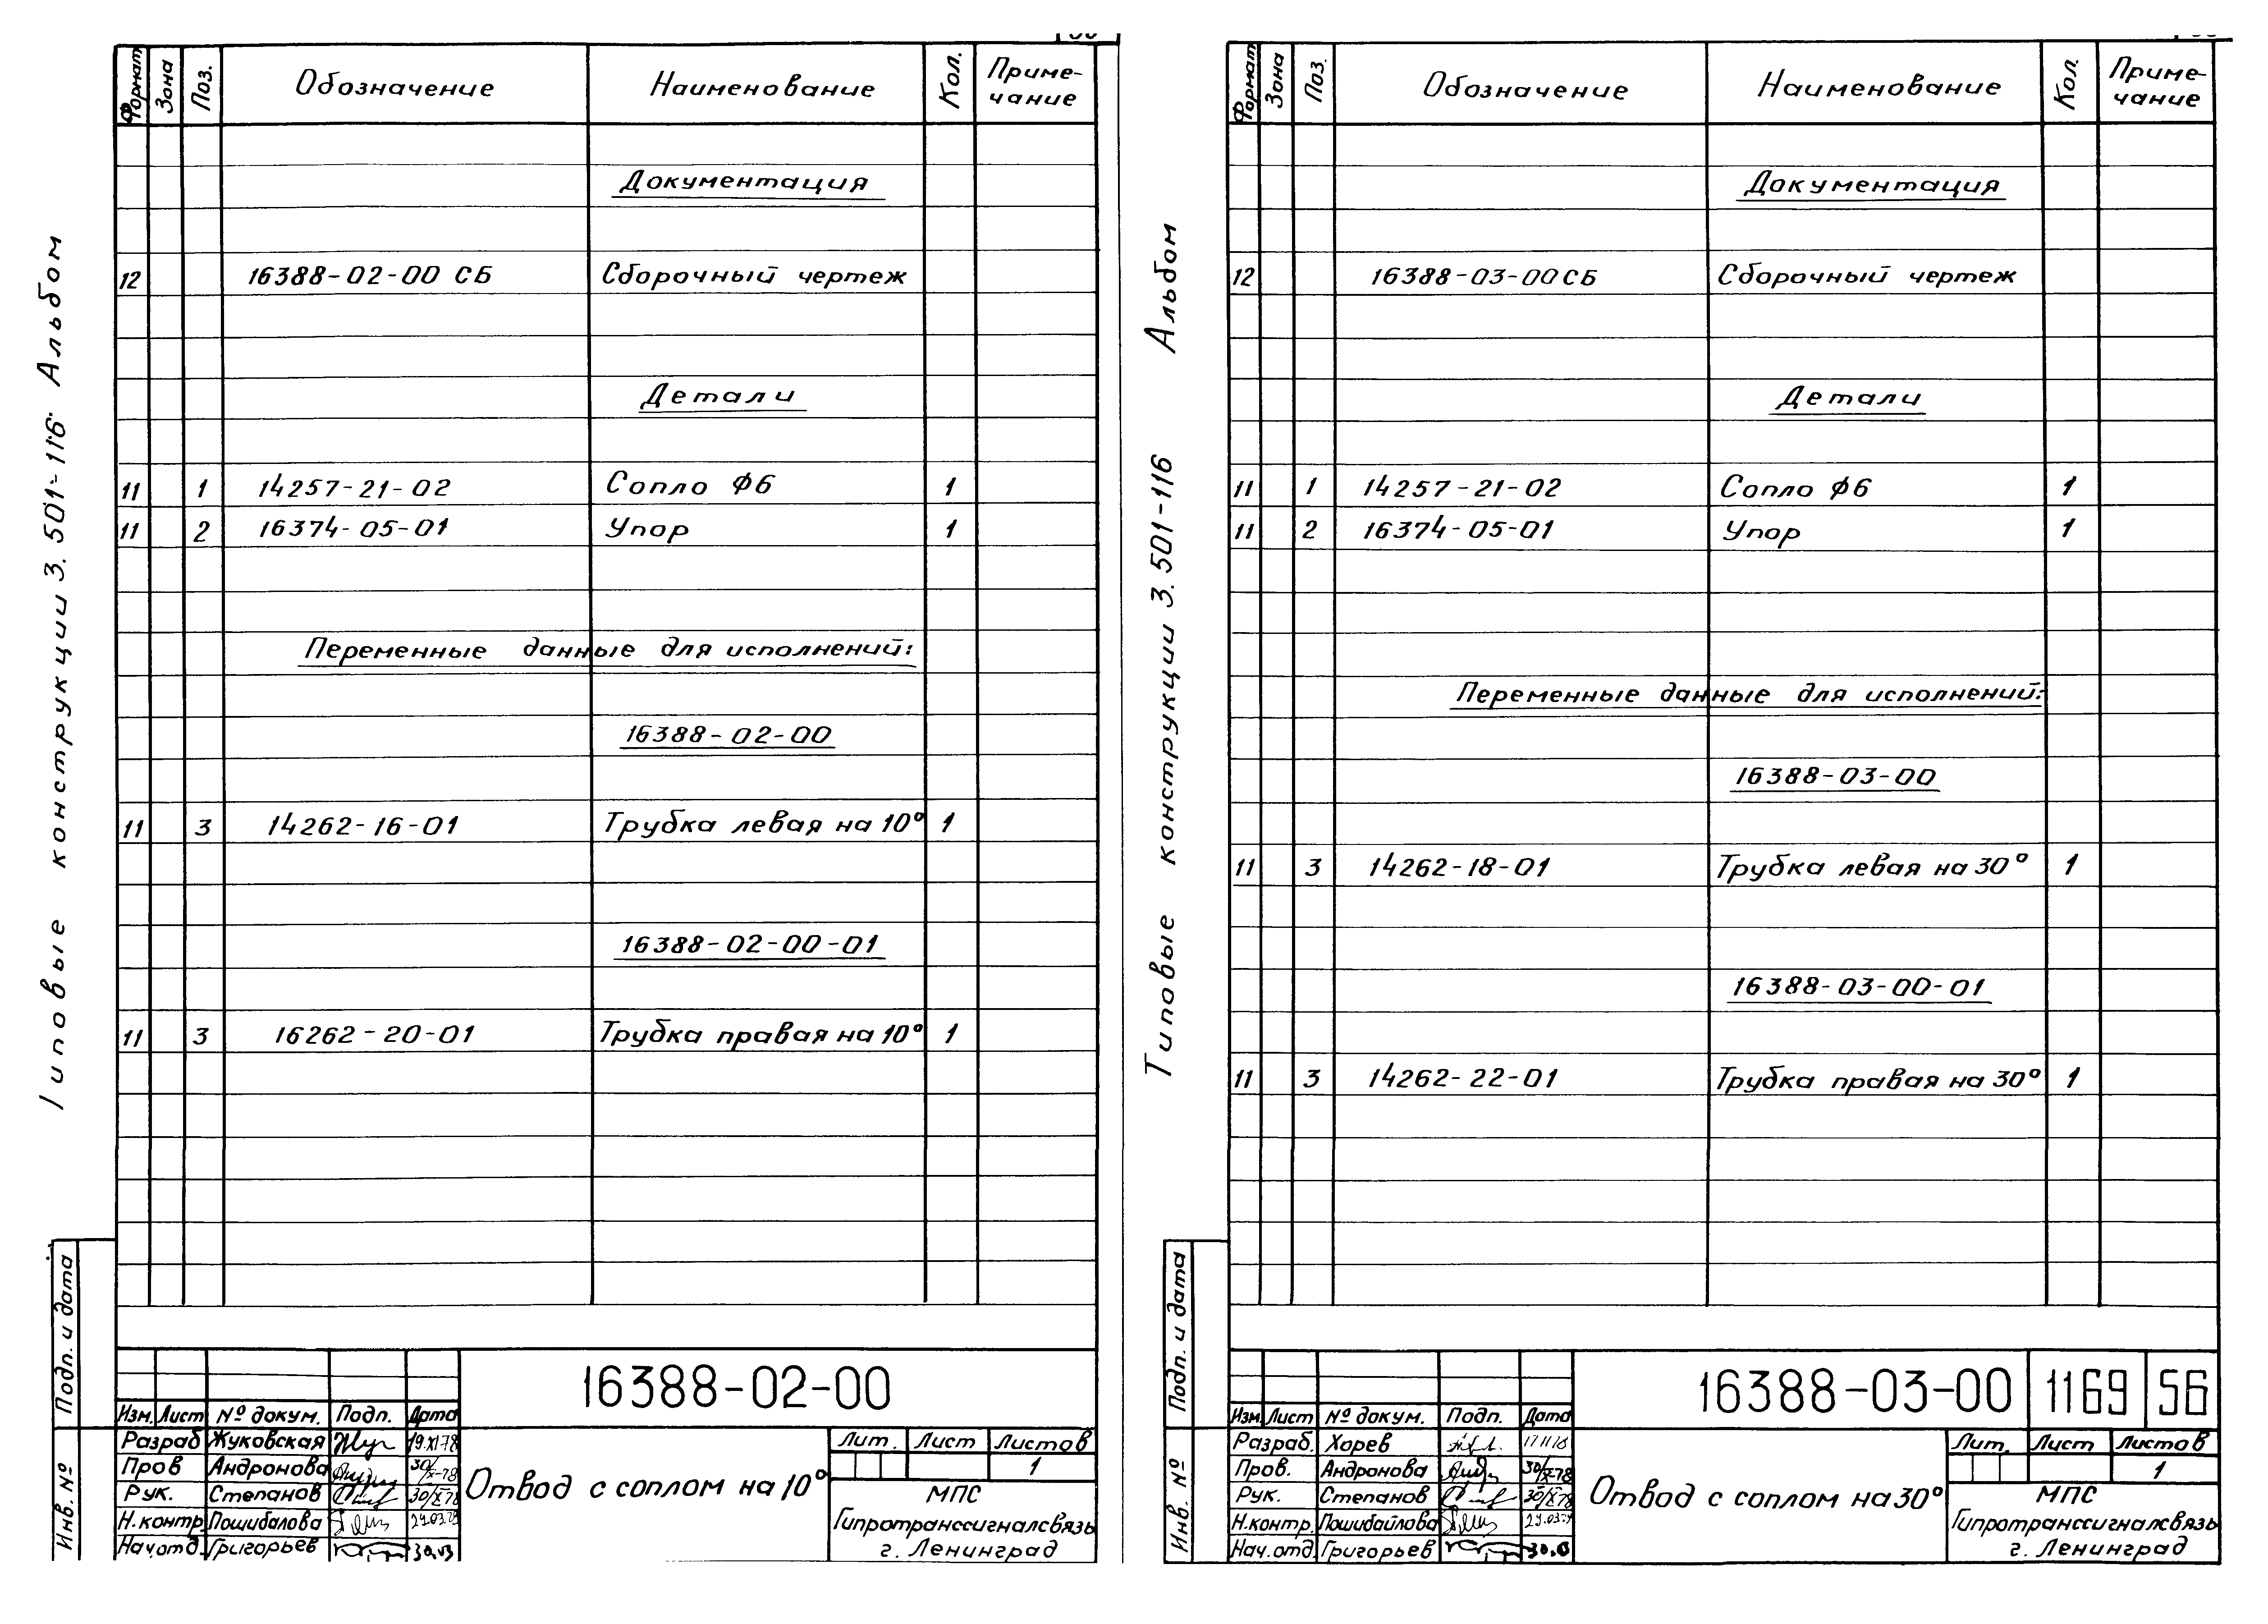 Типовые конструкции 3.501-116 Альбом
Формат Зона Поз. Обозначение Наименование Кол. Приме-
чание
Документация
12 16388-02-00 СБ Сборочный чертеж
Детали
11 1 14257-21-02 Сопло Ф6 1
11 2 16374-05-01 Упор 1
Переменные данные для исполнений:
16388-02-00
11 3 14262-16-01 Трубка левая на 10° 1
16388-02-00-01
11 3 16262-20-01 Трубка правая на 10° 1
Подп. и дата
Инв. №
16388-02-00
Изм. Лист № докум. Подп. Дата
Разраб Жуковская 19.XI-78
Пров Андронова 30/X-78
Рук. Степанов 30/X-78
Н.контр. Пошибалова
Нач.отд. Григорьев 30.03
Отвод с соплом на 10°
Лит. Лист Листов
1
МПС
Гипротранссигналсвязь
г. Ленинград
Типовые конструкции 3.501-116 Альбом
Формат Зона Поз. Обозначение Наименование Кол. Приме-
чание
Документация
12 16388-03-00 СБ Сборочный чертеж
Детали
11 1 14257-21-02 Сопло Ф6 1
11 2 16374-05-01 Упор 1
Переменные данные для исполнений:
16388-03-00
11 3 14262-18-01 Трубка левая на 30° 1
16388-03-00-01
11 3 14262-22-01 Трубка правая на 30° 1
Подп. и дата
Инв. №
16388-03-00 1169 56
Изм. Лист № докум. Подп. Дата
Разраб. Хорев
Пров. Андронова 30/X-78
Рук. Степанов 30/X-78
Н.контр. Пошибайлова
Нач.отд. Григорьев
Отвод с соплом на 30°
Лит. Лист Листов
1
МПС
Гипротранссигналсвязь
г. Ленинград